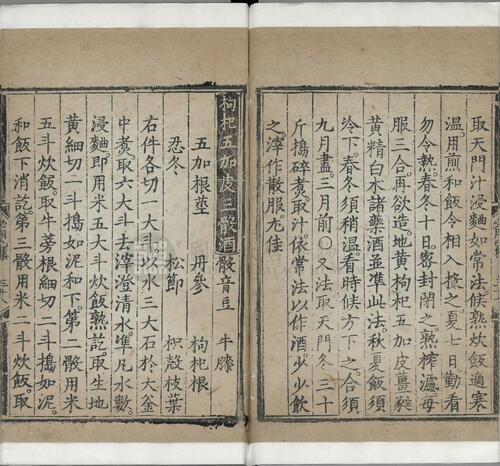 取天門汁浸麴如常法候熟炊飯適寒
溫用煎和飯令相入投之夏七日勤看
勿令熱春冬十日密封閉之熟榨濾每
服三合再欲造地黃枸杞五加皮薑
黃精白水諸藥酒並準此法秋夏飯須
冷下春冬須稍溫看時候方下之合須
九月盡三月前○又法取天門冬三十
斤搗碎煮取汁依常法以作酒少少飲
之滓作散服尤佳
枸杞五加皮三骰酒骰音豆
五加根莖 丹參 枸杞根 牛膝
忍冬 松節 枳殼枝葉
右件各切一大斗以水三大石於大釜
中煮取六大斗去滓澄清水準凡水數
浸麴即用米五大斗炊飯熟訖取生地
黃細切二斗搗如泥和下第二骰用米
五斗炊飯取牛蒡根細切二斗搗如泥
和飯下消訖第三骰用米二斗炊飯取